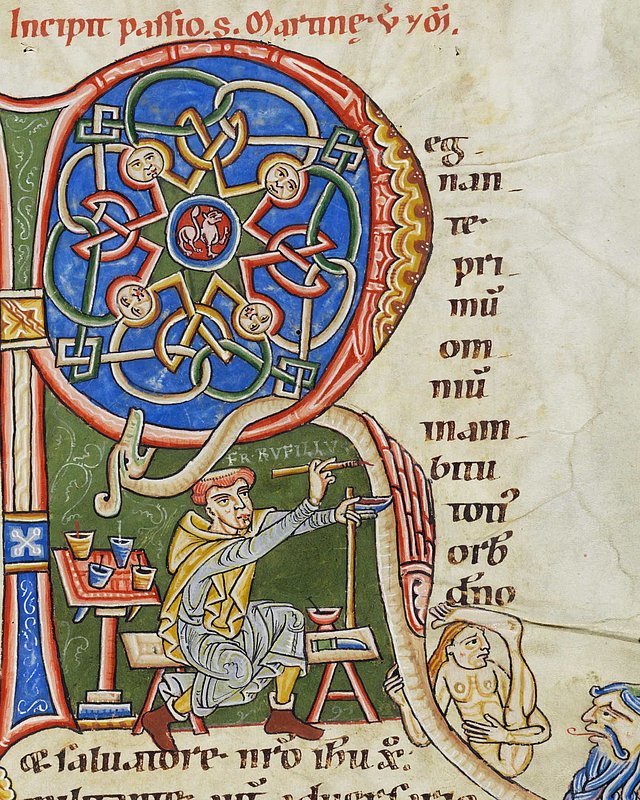 Incipit passio. s. Martinę v̄ ⁊ m̄.
eg-
nan-
te-
pri-
mū
om-
niū
mam-
bitu
toti᾽
orb
d̄no
FR· RVFILLVS
æ saluatore nr̄o ihu x̄: